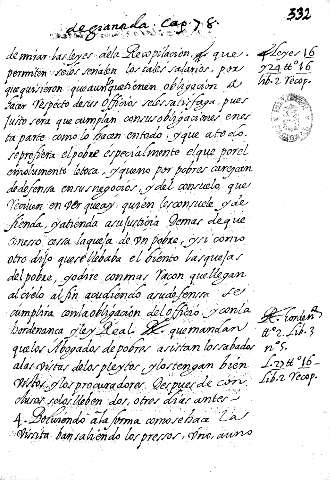 de Granada. Cap. 78.
332
de mirar las leyes de la Recopilacion, que
permiten se les señalen los tales salarios, por
que quisieron que aunque tienen obligacion a
hacer respecto de sus Officios se les satisfaga, pues
justo sera que cumplan con sus obligaciones en es
ta parte como lo hacen en todo, y que a todo
se prefiera el pobre especialmente el que por el
emolumento le toca, y que no por pobres carezcan
de defensa en sus negocios, y del consuelo que
reciven en ver que ay quien los consuele y de
fienda, y atienda a su justicia Demas de que
cessa la queja de un pobre, y si como
otro dijo que se llebaba el biento las quejas
del pobre, yo dire con mas raçon que llegan
al cielo al fin acudiendo a su defensa se
cumplira con la obligacion del officio, y con la
hordenanca y ley Real que mandan
que los Abogados de pobres asistan los sabados
a las vistas de los pleytos, y los tengan bien
vistos, y los procuradores Despues de con
clusos se los lleben dos, o tres dias antes
4. Bolviendo a la forma como se hace la
vissita ban saliendo los pressos, uno, a uno
Leyes 16
y 24 ttº 16
lib. 2 Recop.
ordena
ttº 2. Lib. 3
nº 5.
L. 27 ttº 16
Lib. 2 Recop.